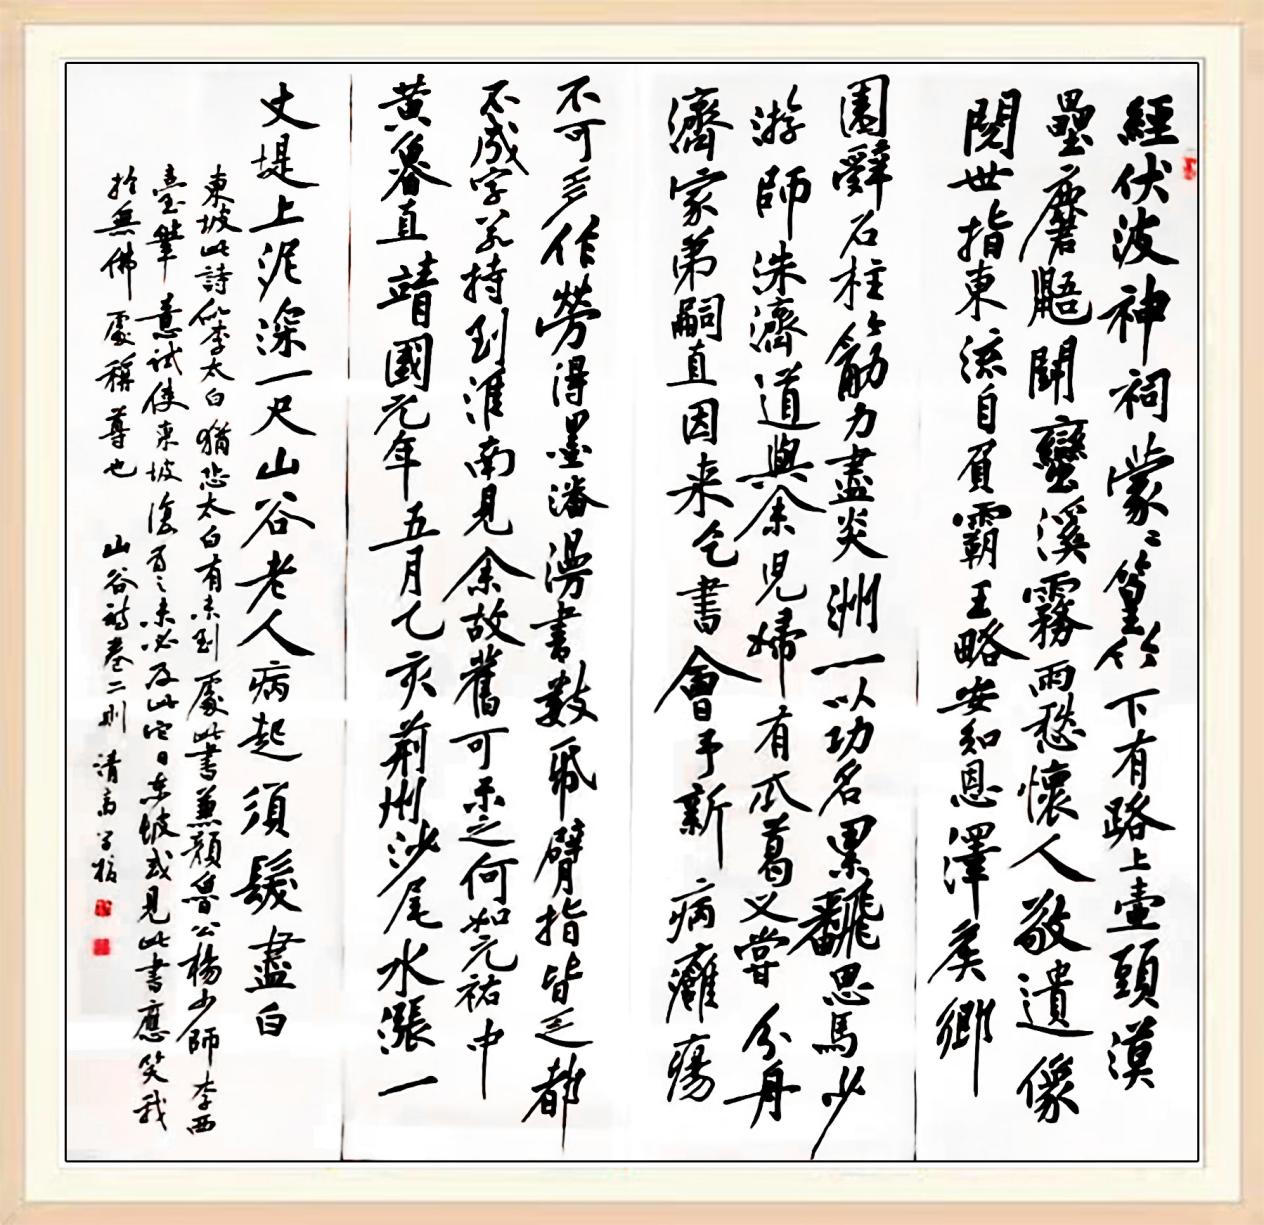 經伏波神祠蒙〻篁竹下有路上壺頭漠
壘麏鼯鬪蠻溪霧雨愁懷人敬遺像
閱世指東流自負霸王略安知恩澤矦鄉
園辭石柱筋力盡炎洲一以功名累飜思馬少
游師洙濟道與余兒婦有瓜葛又嘗分舟
濟家弟嗣直因来乞書會予新病癰瘍
不可多作勞得墨瀋漫書數紙臂指皆乏都
不成字若持到淮南見余故舊可示之何如元祐中
黃魯直靖國元年五月乙亥荊州沙尾水漲一
丈堤上泥深一尺山谷老人病起須髮盡白
東坡此詩似李太白猶恐太白有未到處此書兼顏魯公楊少師李西
臺筆意試使東坡復爲之未必及此它日東坡或見此書應笑我
於無佛處稱尊也 山谷詩卷二則 清高